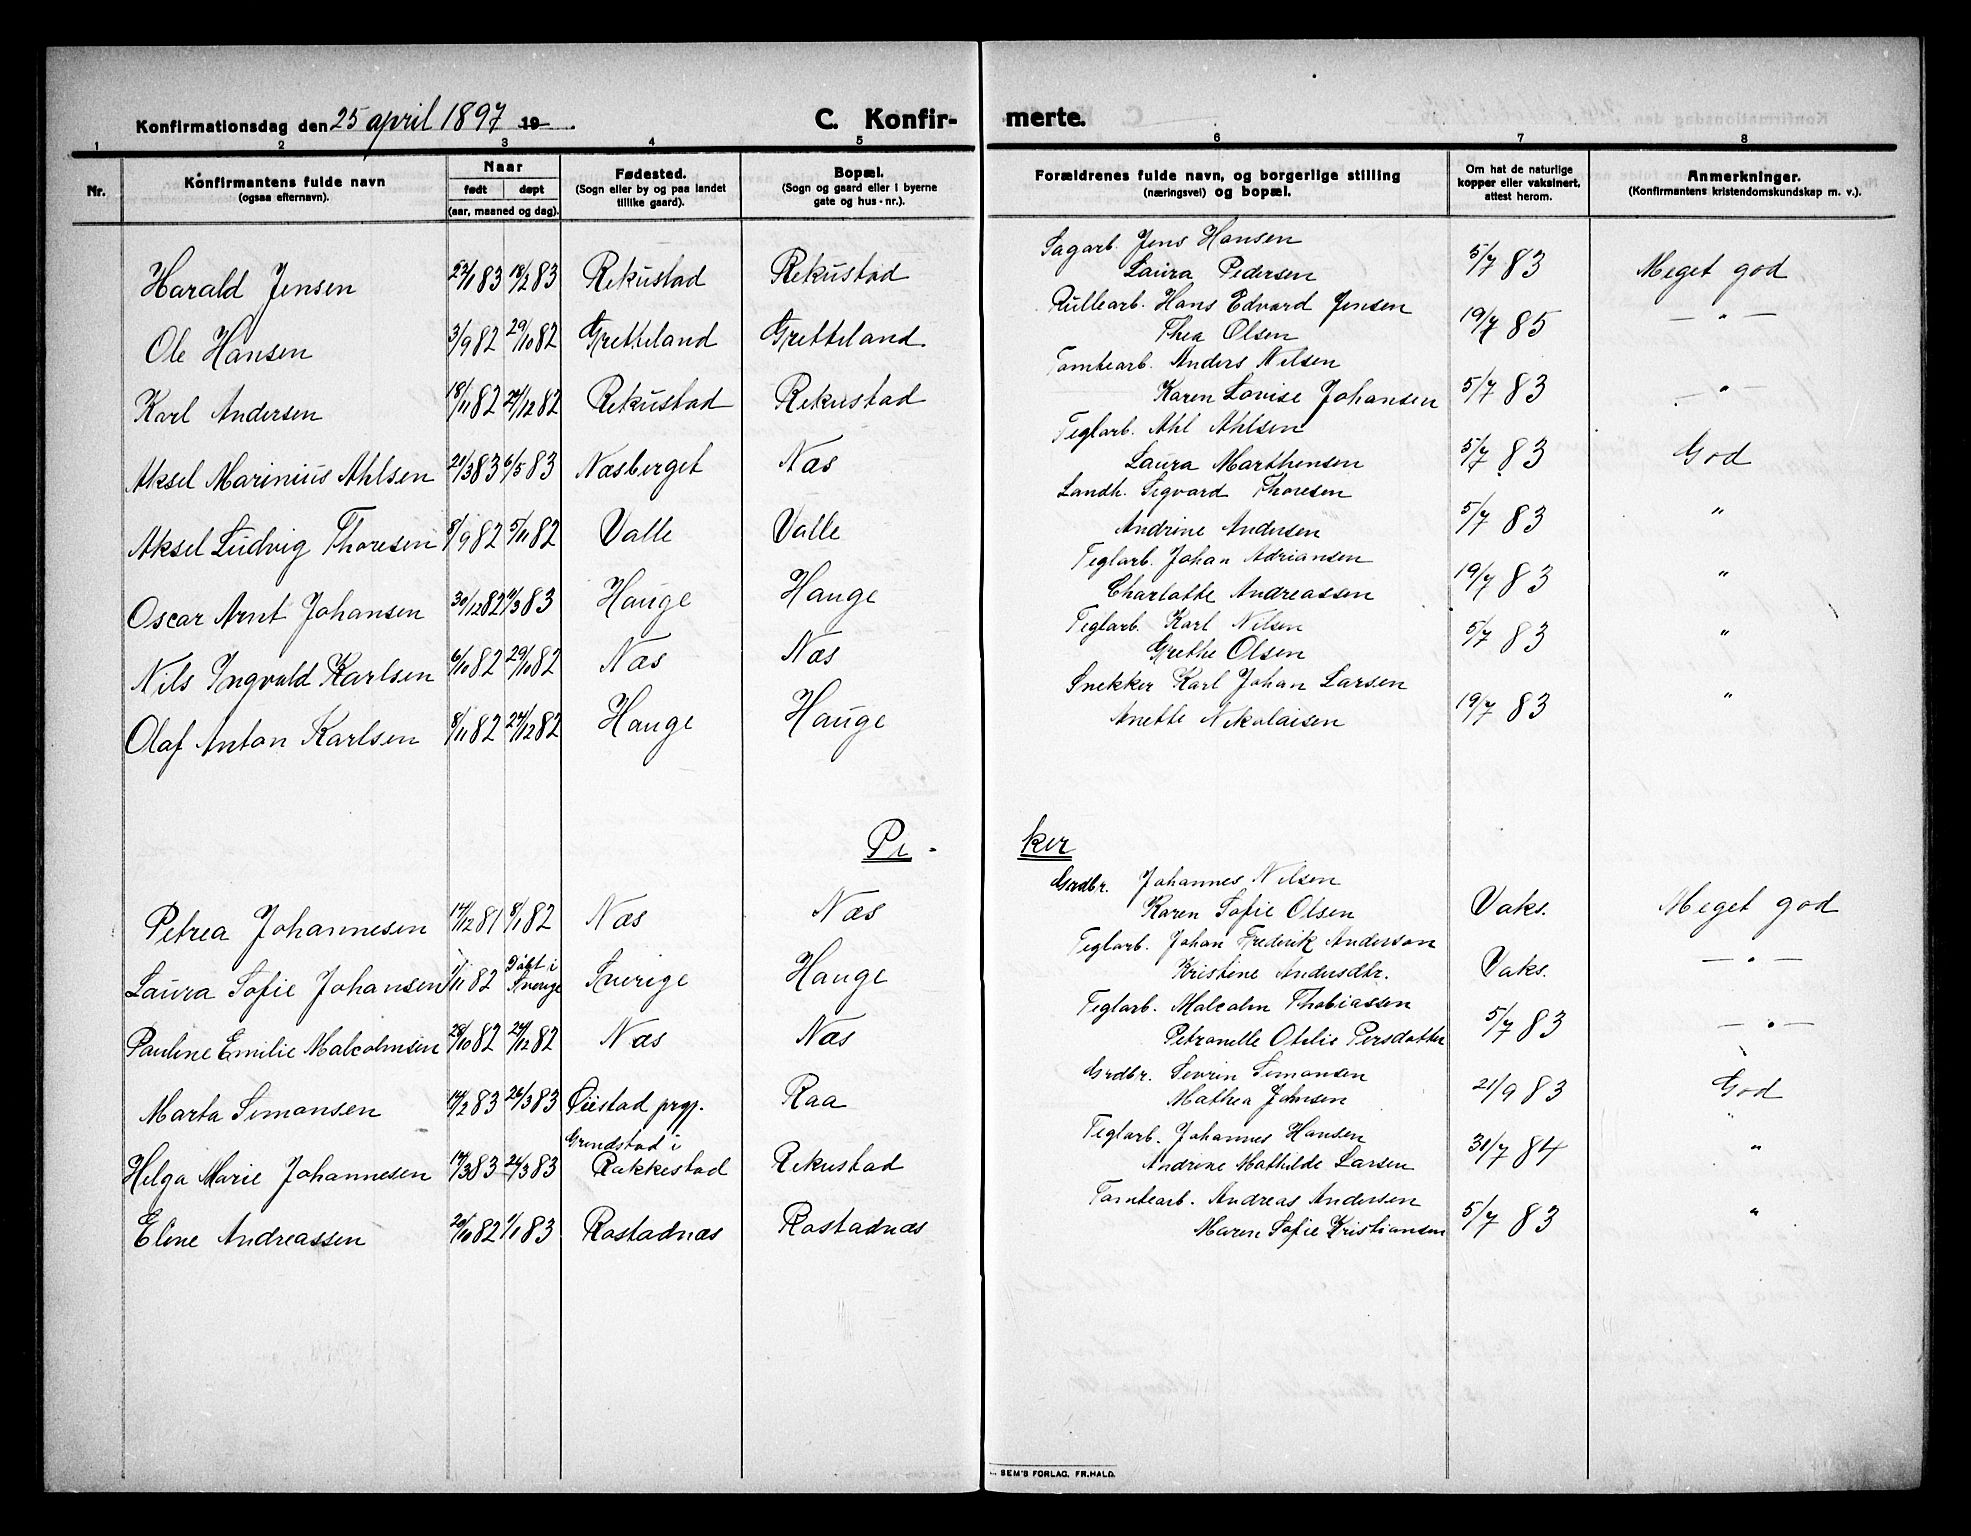 Konfirmationsdag den 25 april 1897 19
C. Konfir- merte.
1 2 3 4 5 6 7 8
Nr.
Konfirmantens fulde navn
(ogsaa efternavn).
Naar
født døpt
(aar, maaned og dag).
Fødested.
(Sogn eller by og paa landet
tillike gaard).
Bopæl.
(Sogn og gaard eller i byerne
gate og hus-nr.).
Forældrenes fulde navn, og borgerlige stilling
(næringsvei) og bopæl.
Om hat de naturlige
kopper eller vaksinert,
attest herom.
Anmerkninger.
(Konfirmantens kristendomskundskap m. v.).
Sagarb. Jens Hansen
Harald Jensen 18/2 83 Rekustad Rekustad Laura Pedersen 5/7 83 Meget god
Rullearb. Hans Edvard Jensen
Ole Hansen 3/9 82 29/10 82 Gretteland Gretteland Thea Olsen 19/7 85 — " —
Tomtearb. Anders Nilsen
Karl Andersen 18/11 82 24/12 82 Rekustad Rekustad Karen Lovise Johansen 5/7 83 — " —
Teglarb. Ahl Ahlsen
Aksel Marinius Ahlsen 6/5 83 Næsberget Næs Laura Marthensen 5/7 83 God
Landh. Sigvard Thoresen
Aksel Ludvig Thoresen 8/9 82 5/11 82 Valle Valle Andrine Andersen 5/7 83 "
Teglarb. Johan Adriansen
Oscar Arnt Johansen 30/12 82 11/3 83 Hauge Hauge Charlotte Andreassen 19/7 83 "
Teglarb. Karl Nilsen
Nils Ingvald Karlsen 6/10 82 29/10 82 Næs Næs Grethe Olsen 5/7 83 "
Snekker Karl Johan Larsen
Olaf Anton Karlsen 8/11 82 24/12 82 Hauge Hauge Anette Nikolaisen 19/7 83 "
Pi - ker
Grdbr. Johannes Nilsen
Petrea Johannesen 14/12 81 8/1 82 Næs Næs Karen Sofie Olsen Vaks. Meget god
Teglarb. Johan Frederik Anderson
Laura Sofie Johansen 1/11 82 Døbt i Sverige Sverige Hauge Kristine Andersdtr. Vaks. — " —
Teglarb. Malcolm Thobiassen
Pauline Emilie Malcolmsen 28/10 82 24/12 82 Næs Næs Petronelle Otilie Persdotter 5/7 83 — " —
Grdbr. Sevrin Simonsen
Marta Simonsen 14/2 83 26/3 83 prgj. Raa Mathea Johnsen 21/9 83 God
Teglarb. Johannes Hansen
Helga Marie Johannesen 14/3 83 24/3 83 Grendstad i Rakkestad Rekustad Andrine Mathilde Larsen 31/7 84 "
Tomtearb. Andreas Andersen
Eline Andreassen 20/10 82 1/1 83 Rostadnæs Rostadnæs Maren Sofie Kristiansen 5/7 83 "
SEM'S FORLAG, FR.HALD.